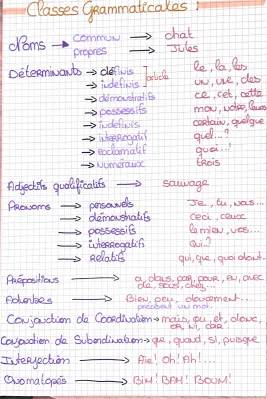 Classes Grammaticales :
Noms → commun → chat
propres → Jules
Déterminants → définis article le, la, les
→ indéfinis un, une, des
→ démonstratifs ce, cet, cette
→ possessifs mon, votre, leurs
→ indéfinis certain, quelque
→ interrogatif quel...?
→ exclamatif quoi...!
→ numéraux trois
Adjectifs qualificatifs → sauvage
Pronoms → personnels Je, tu, nous...
→ démonstratifs ceci, ceux
→ possessifs le mien, vos...
→ interrogatifs Qui..?
→ relatifs qui, que, quoi, dont.
Prépositions → à, dans, par, pour, en, avec
de, sous, chez...
Adverbes → Bien, peu, doucement...
précisent un mot.
Conjonction de Coordination → mais, ou, et, donc,
or, ni, car
Conjonction de Subordination → que, quand, si, puisque
Interjection → Aie! Oh! Ah!...
Onomatopés → BIM! BAM! BOUM!